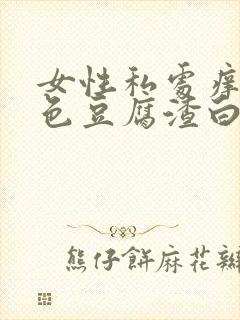 女性私處痒
色豆腐渣白
熊仔餅麻花辮